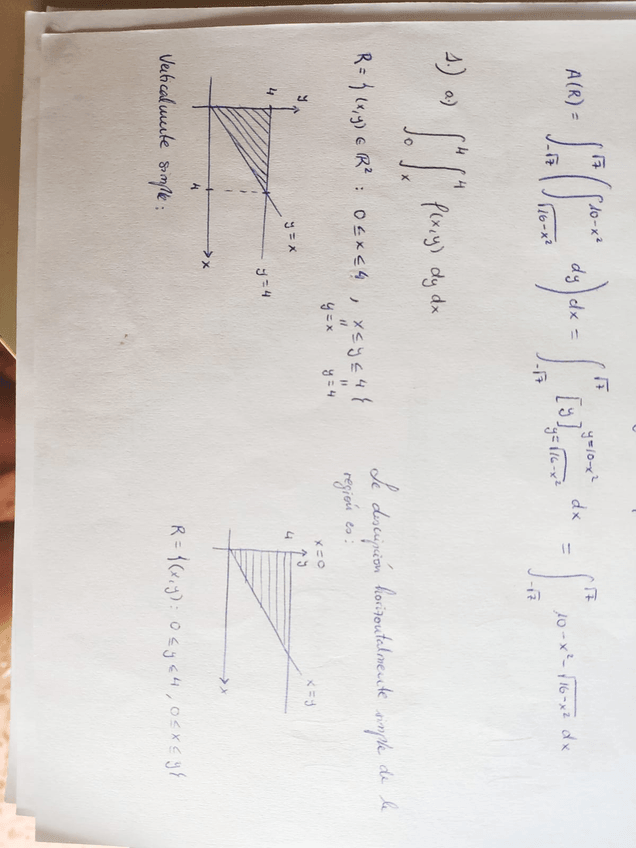 A(R) = ∫_{-√7}^{√7} ( ∫_{√(16-x²)}^{10-x²} dy ) dx = ∫_{-√7}^{√7} [y]_{y=√(16-x²)}^{y=10-x²} dx = ∫_{-√7}^{√7} 10-x²-√(16-x²) dx
1.) a) ∫_0^4 ∫_x^4 f(x,y) dy dx
R = { (x,y) ∈ ℝ² : 0 ≤ x ≤ 4 , x ≤ y ≤ 4 }
" "
y=x y=4
y
4
y=x
y=4
4
x
Verticalmente simple:
Le descripión horizontalmente simple de la
región es:
x=0
y
4
x=y
x
R = { (x,y) : 0 ≤ y ≤ 4 , 0 ≤ x ≤ y }